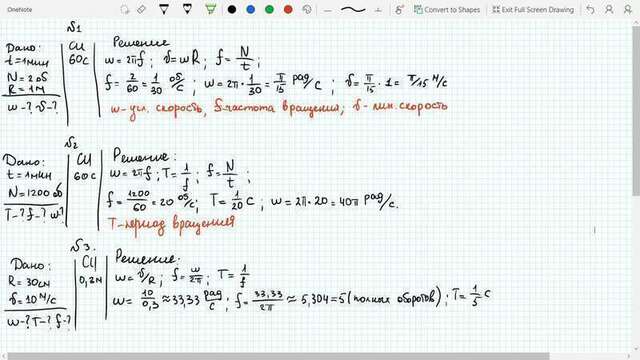 OneNote
Convert to Shapes
Exit Full Screen Drawing
№1
Дано:
t=1мин
N=2об
R=1м
ω-? υ-?
СИ
60с
Решение
ω=2πf; υ=ωR; f=N/t;
f=2/60=1/30 об/с; ω=2π·1/30=π/15 рад/с; υ=π/15·1=π/15 м/с
ω-угл. скорость, f-частота вращения; υ-лин. скорость
№2
Дано:
t=1мин
N=1200 об
T-? f-? ω-?
СИ
60с
Решение:
ω=2πf; T=1/f; f=N/t;
f=1200/60=20 об/с; T=1/20 с; ω=2π·20=40π рад/с.
T-период вращения
№3.
Дано:
R=30см
υ=10м/с
ω-? T-? f-?
СИ
0,3м
Решение:
ω=υ/R; f=ω/2π; T=1/f
ω=10/0,3≈33,33 рад/с; f=33,33/2π≈5,304=5(полных оборотов); T=1/5 с